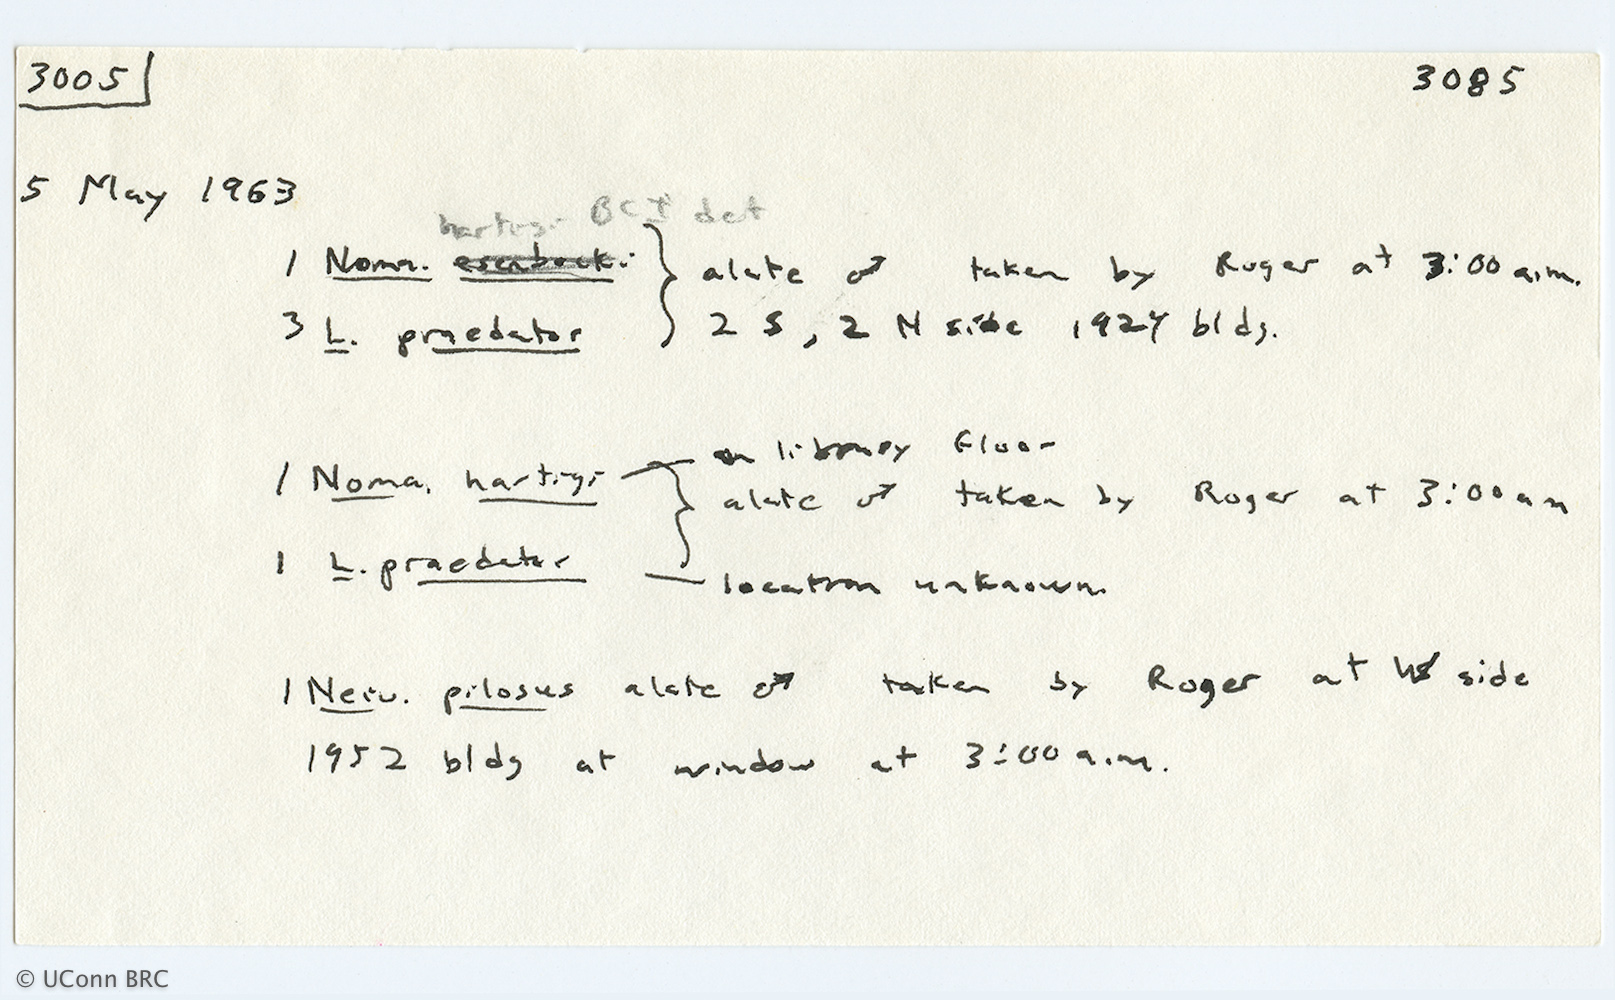 3005 3085
5 May 1963
hartigi BCI det
1 Noma. esenbecki alate ♂ taken by Roger at 3:00 a.m.
3 L. praedator 2 S, 2 N side 1924 bldg.
on library floor
1 Noma. hartigi alate ♂ taken by Roger at 3:00 am
1 L. praedator
location unknown.
1 Neiv. pilosus alate ♂ taken by Roger at side
1952 bldg at window at 3:00 a.m.
© UConn BRC